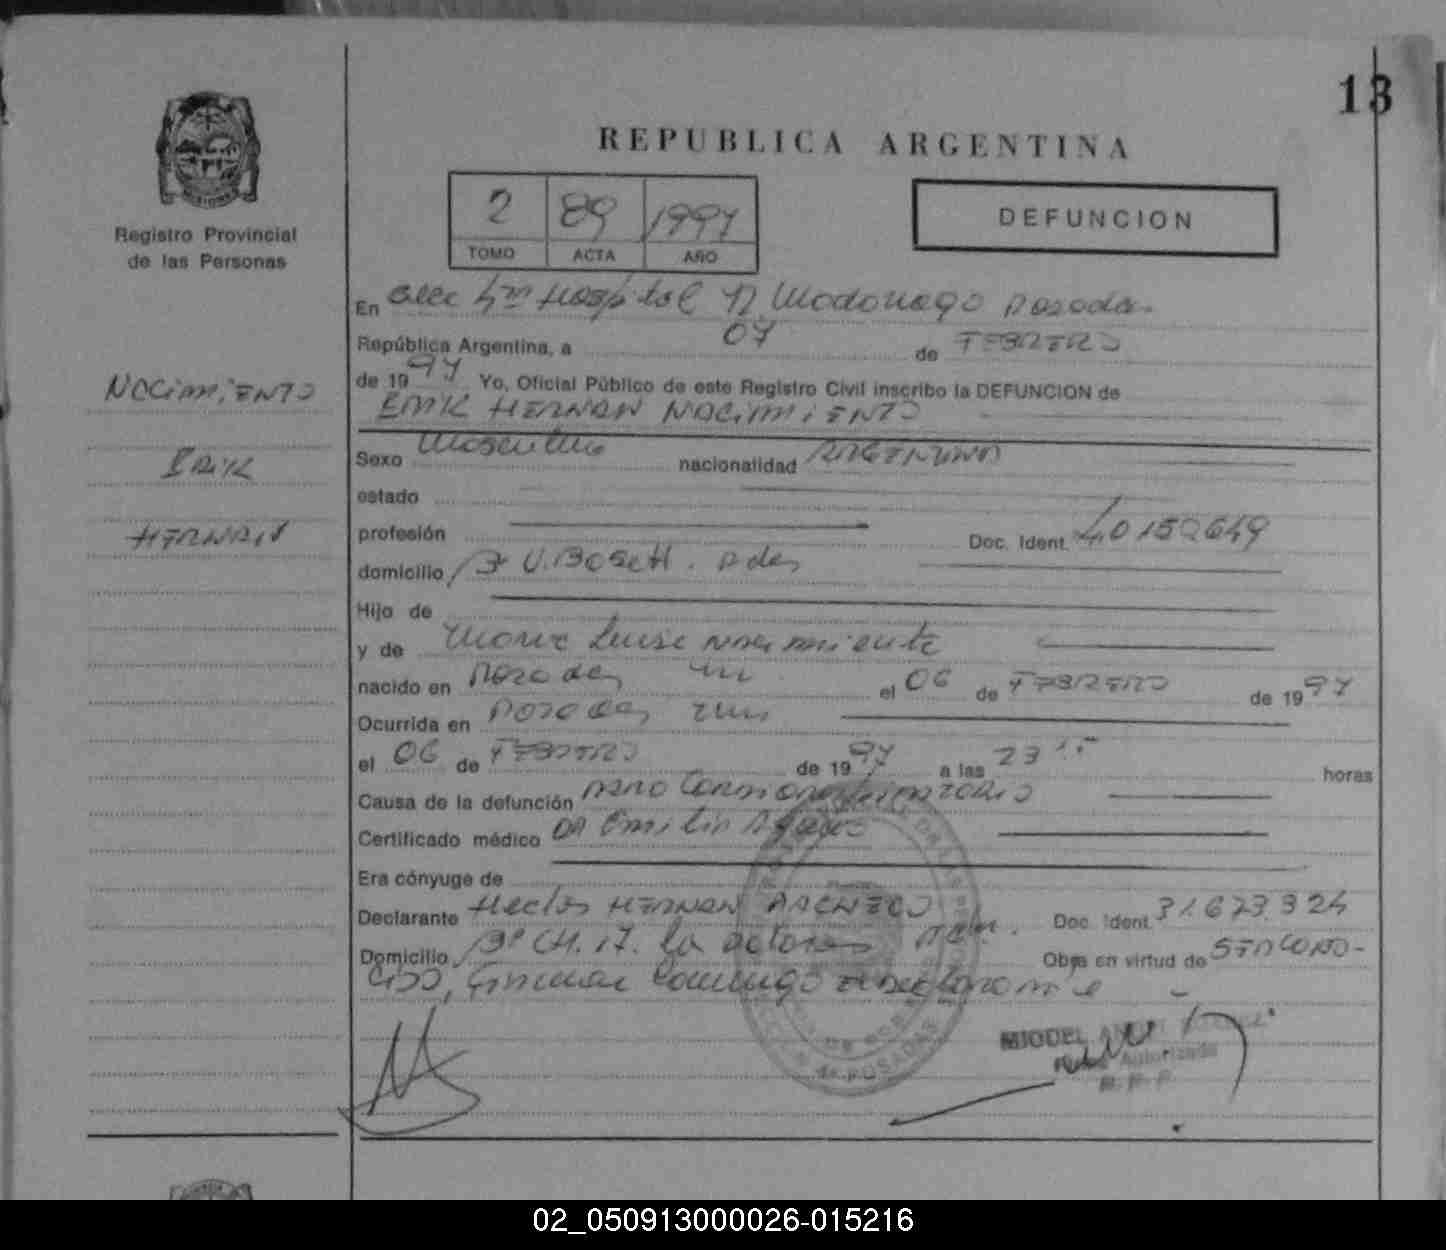 13
REPUBLICA ARGENTINA
2 89 1997
TOMO ACTA AÑO
DEFUNCION
MISIONES
Registro Provincial
de las Personas
NACIMIENTO
ERIK
HERNAN
En Secc 4ta Hospital R. Madariaga Posadas
República Argentina, a 07 de FEBRERO
de 19 97 Yo, Oficial Público de este Registro Civil inscribo la DEFUNCION de
ERIK HERNAN NACIMIENTO
Sexo Masculino nacionalidad ARGENTINA
estado
profesión Doc. Ident. 40152649
domicilio Bº V. Bosetti. Pdas
Hijo de
y de Maria Luisa Nacimiento
nacido en Posadas Mis el 06 de FEBRERO de 19 97
Ocurrida en Posadas Mis
el 06 de FEBRERO de 19 97 a las 23 horas
Causa de la defunción PARO CARDIORESPIRATORIO
Certificado médico DR Emilio
Era cónyuge de
Declarante Hector HERNAN PACHECO Doc. Ident. 31.673.324
Domicilio Bº CH. 17. Pdas. Obra en virtud de SER CONO-
CIDO, Firma Conmigo El Declarante
POSADAS
MIGUEL
Autorizado
R. P. P.
02_050913000026-015216